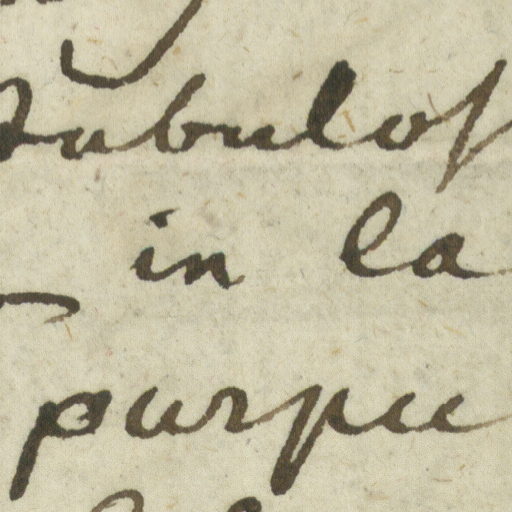 fabuloſ
in la
purpu